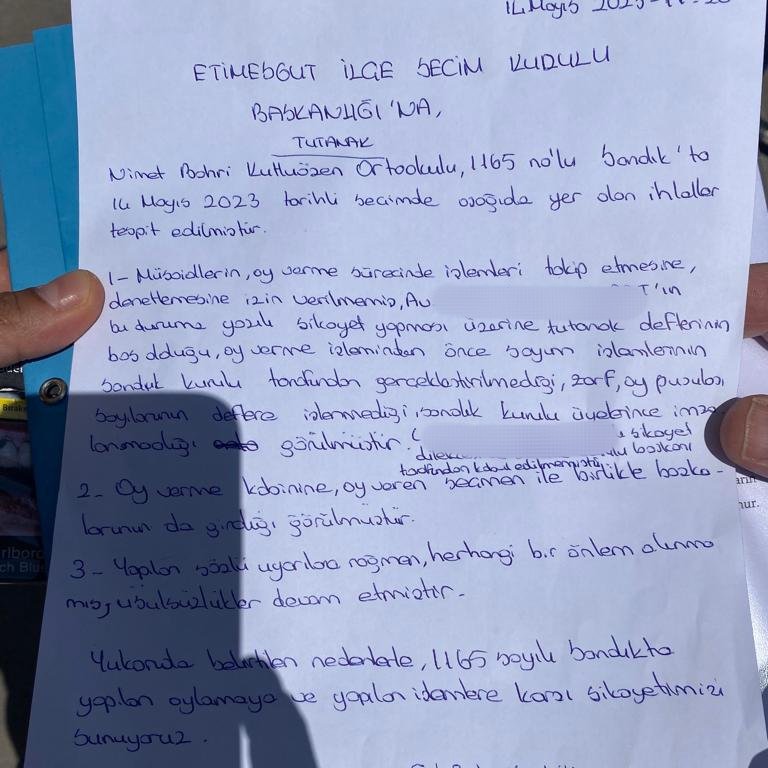 14 Mayıs 2023
ETİMESGUT İLÇE SEÇİM KURULU
BAŞKANLIĞI'NA,
TUTANAK
Nimet Bahri Kutluözen Ortaokulu, 1165 no'lu Sandık'ta
14 Mayıs 2023 tarihli seçimde aşağıda yer alan ihlaller
tespit edilmiştir.
1- Müşahidlerin, oy verme sürecinde işlemleri takip etmesine,
denetlemesine izin verilmemiş, Av T'ın
bu duruma yazılı şikayet yapması üzerine tutanak defterinin
boş olduğu, oy verme işleminden önce sayım işlemlerinin
sandık kurulu tarafından gerçekleştirilmediği, zarf, oy pusulası
sayılarının deftere işlenmediği, sandık kurulu üyelerince imza
lanmadığı görülmüştür. ( şikayet
dilekç lu başkanı
tarafından kabul edilmemiştir
2- Oy verme kabinine, oy veren seçmen ile birlikte başka-
larının da girdiği görülmüştür.
3- Yapılan sözlü uyarılara rağmen, herhangi bir önlem alınma
mış, usulsüzlükler devam etmiştir.
Yukarıda belirtilen nedenlerle, 1165 sayılı sandıkta
yapılan oylamaya ve yapılan işlemlere karşı şikayetimizi
sunuyoruz.
rlboro
ch Blue
nur.